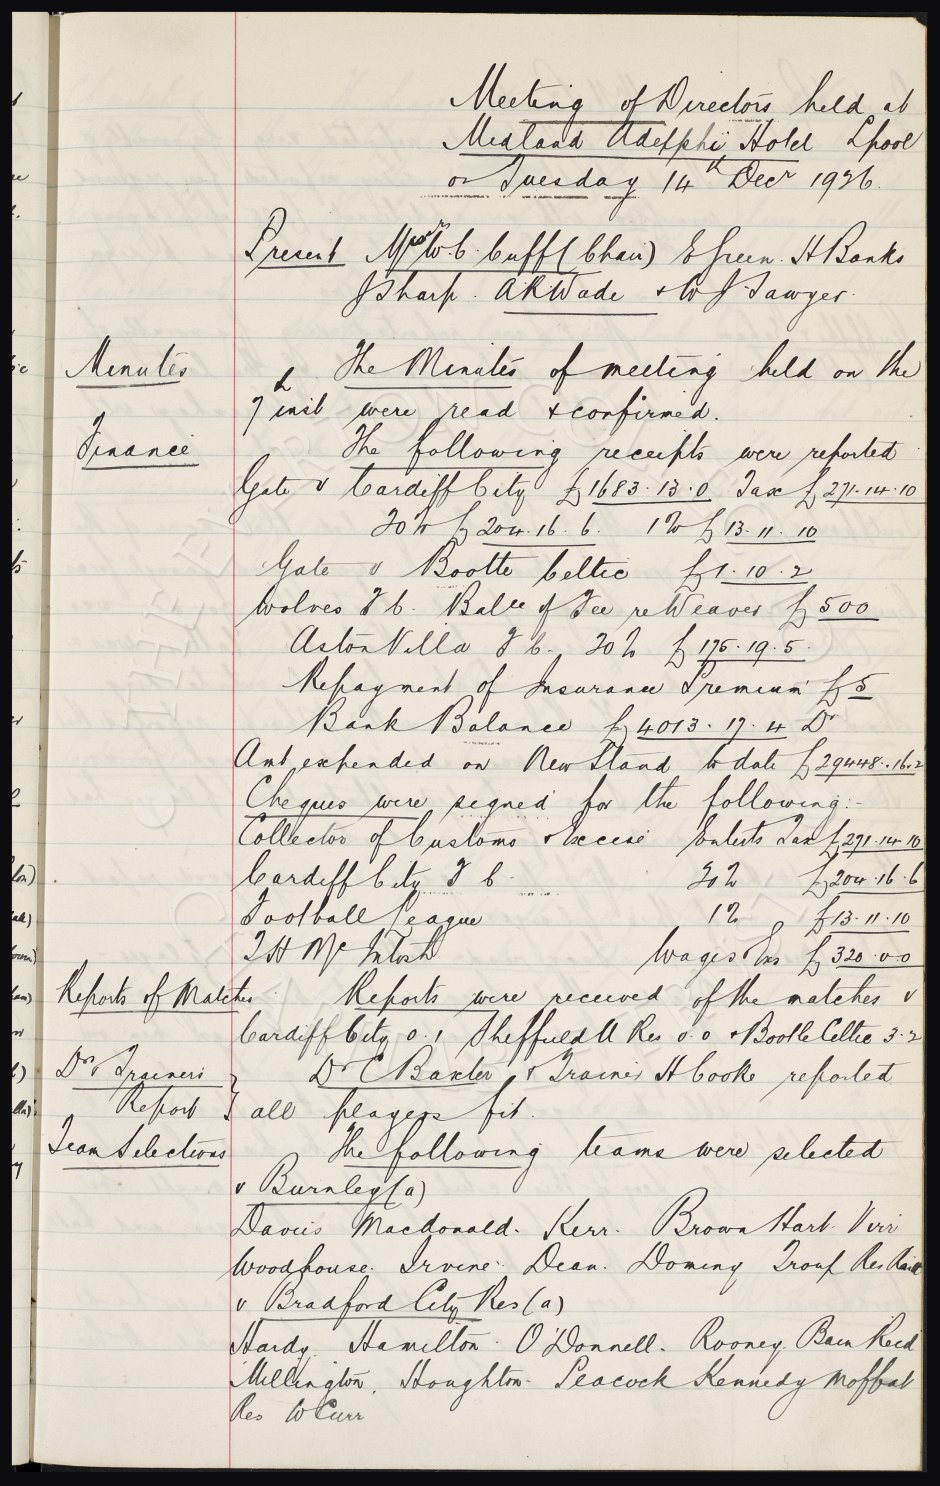 Meeting of Directors held at
Midland Adelphi Hotel Lpool
on Tuesday 14th Decr 1926.
Present Messrs W. C. Cuff (Chair) E Green. H Banks
J Sharp. A R Wade & W J Sawyer.
Minutes The Minutes of meeting held on the
7th inst were read & confirmed.
Finance The following receipts were reported
Gate v Cardiff City £1683.13.0 Tax £271.14.10
20% £204.16.6. 1% £13.11.10
Gate v Bootle Celtic £1.10.2
Wolves F C. Balce of Fee re Weaver £500
Aston Villa F C. 20% £175.19.5.
Repayment of Insurance Premium £5
Bank Balance £4013.17.4 Dr
Amt expended on New Stand to date £29448.16.2
Cheques were signed for the following:-
Collector of Customs & Excise Entertts Tax £271.14.10
Cardiff City F C. 20% £204.16.6
Football League 1% £13.11.10
T H McIntosh Wages Exs £320.0.0
Reports of Matches Reports were received of the matches v
Cardiff City 0.1 Sheffield U Res 0.0 & Bootle Celtic 3-2
Dr & Trainers Dr C Baxter & Trainer H Cooke reported
Report } all players fit.
Team Selections The following teams were selected
v Burnley (a)
Davies Macdonald. Kerr. Brown Hart. Virr
Woodhouse. Irvine. Dean. Dominy Troup Res Raitt
v Bradford City Res (a)
Hardy. Hamilton. O'Donnell. Rooney. Bain Reid
Millington, Houghton. Peacock Kennedy Moffat
Res W Curr